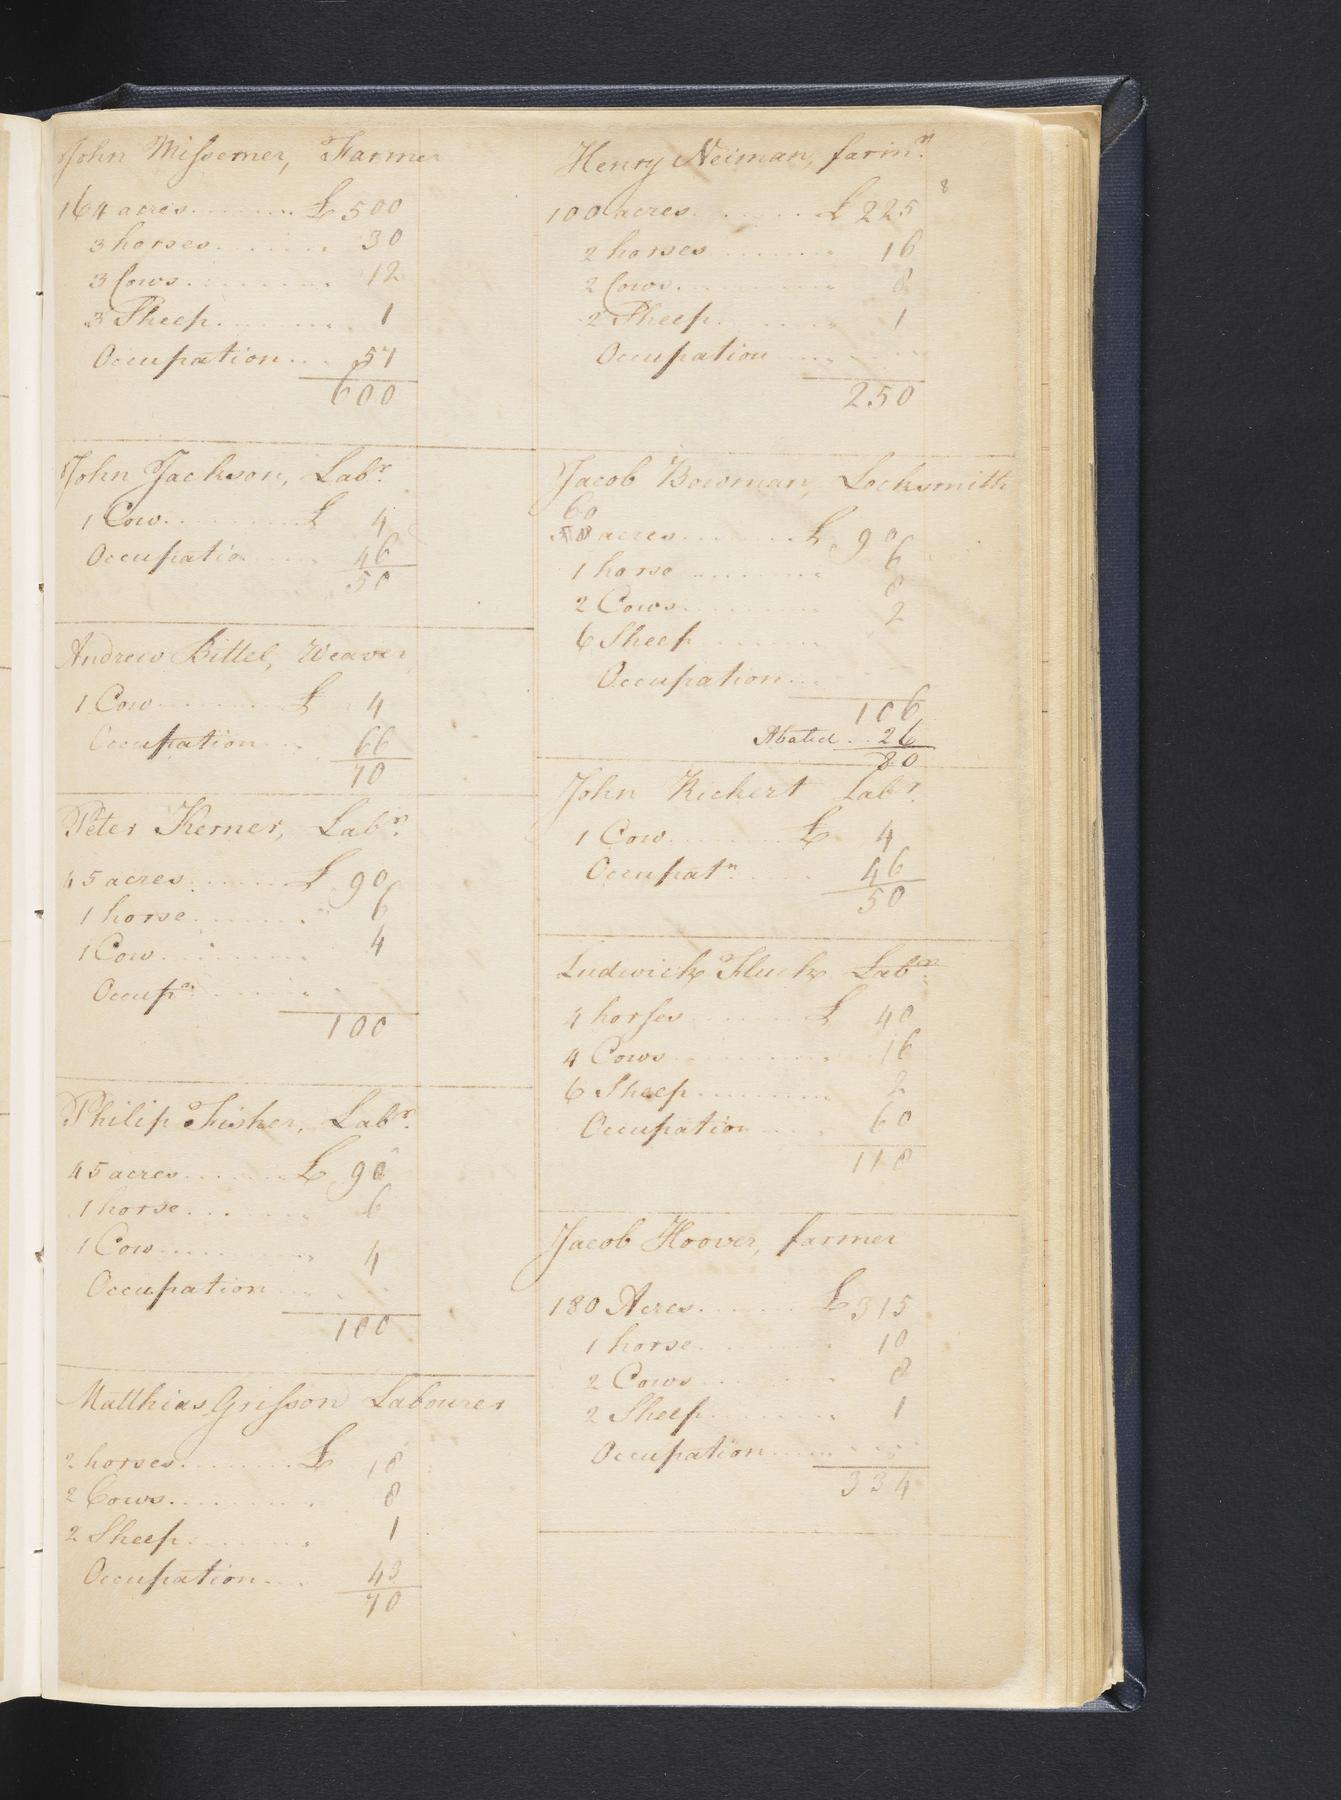 John Misserner, Farmer
164 acres......... £ 500
3 horses........ 30
3 Cows.......... 12
3 Sheep......... 1
Occupation... 57
600
John Jackson, Labr.
1 Cow.......... £ 4
Occupatio.... 46
50
Andrew Bittel, Weaver
1 Cow......... £ 4
Occupation... 66
70
Peter Kerner, Labr.
45 acres....... £ 90
1 horse........ 6
1 Cow.......... 4
Occupn.........
100
Philip Fisher, Labr.
45 acres....... £ 90
1 horse....... 6
1 Cow.......... 4
Occupation.....
100
Matthias Grisson Labourer
2 horses........ £ 18
2 Cows......... 8
2 Sheep........ 1
Occupation... 43
70
8
Henry Neiman, farmr.
100 acres........ £ 225
2 horses........ 16
2 Cows.......... 8
2 Sheep........ 1
Occupation.......
250
Jacob Bowman, Locksmith
60
acres........ £ 90
1 horse......... 6
2 Cows.......... 8
6 Sheep........ 2
Occupation.....
106
Abated... 26
80
John Rickert Labr.
1 Cow......... £ 4
Occupatn...... 46
50
Ludwick Fluck Labr.
4 horses........ £ 40
4 Cows.......... 16
6 Sheep......... 2
Occupation.... 60
118
Jacob Hoover, farmer
180 Acres....... £ 315
1 horse......... 10
2 Cows......... 8
2 Sheep........ 1
Occupation.......
334